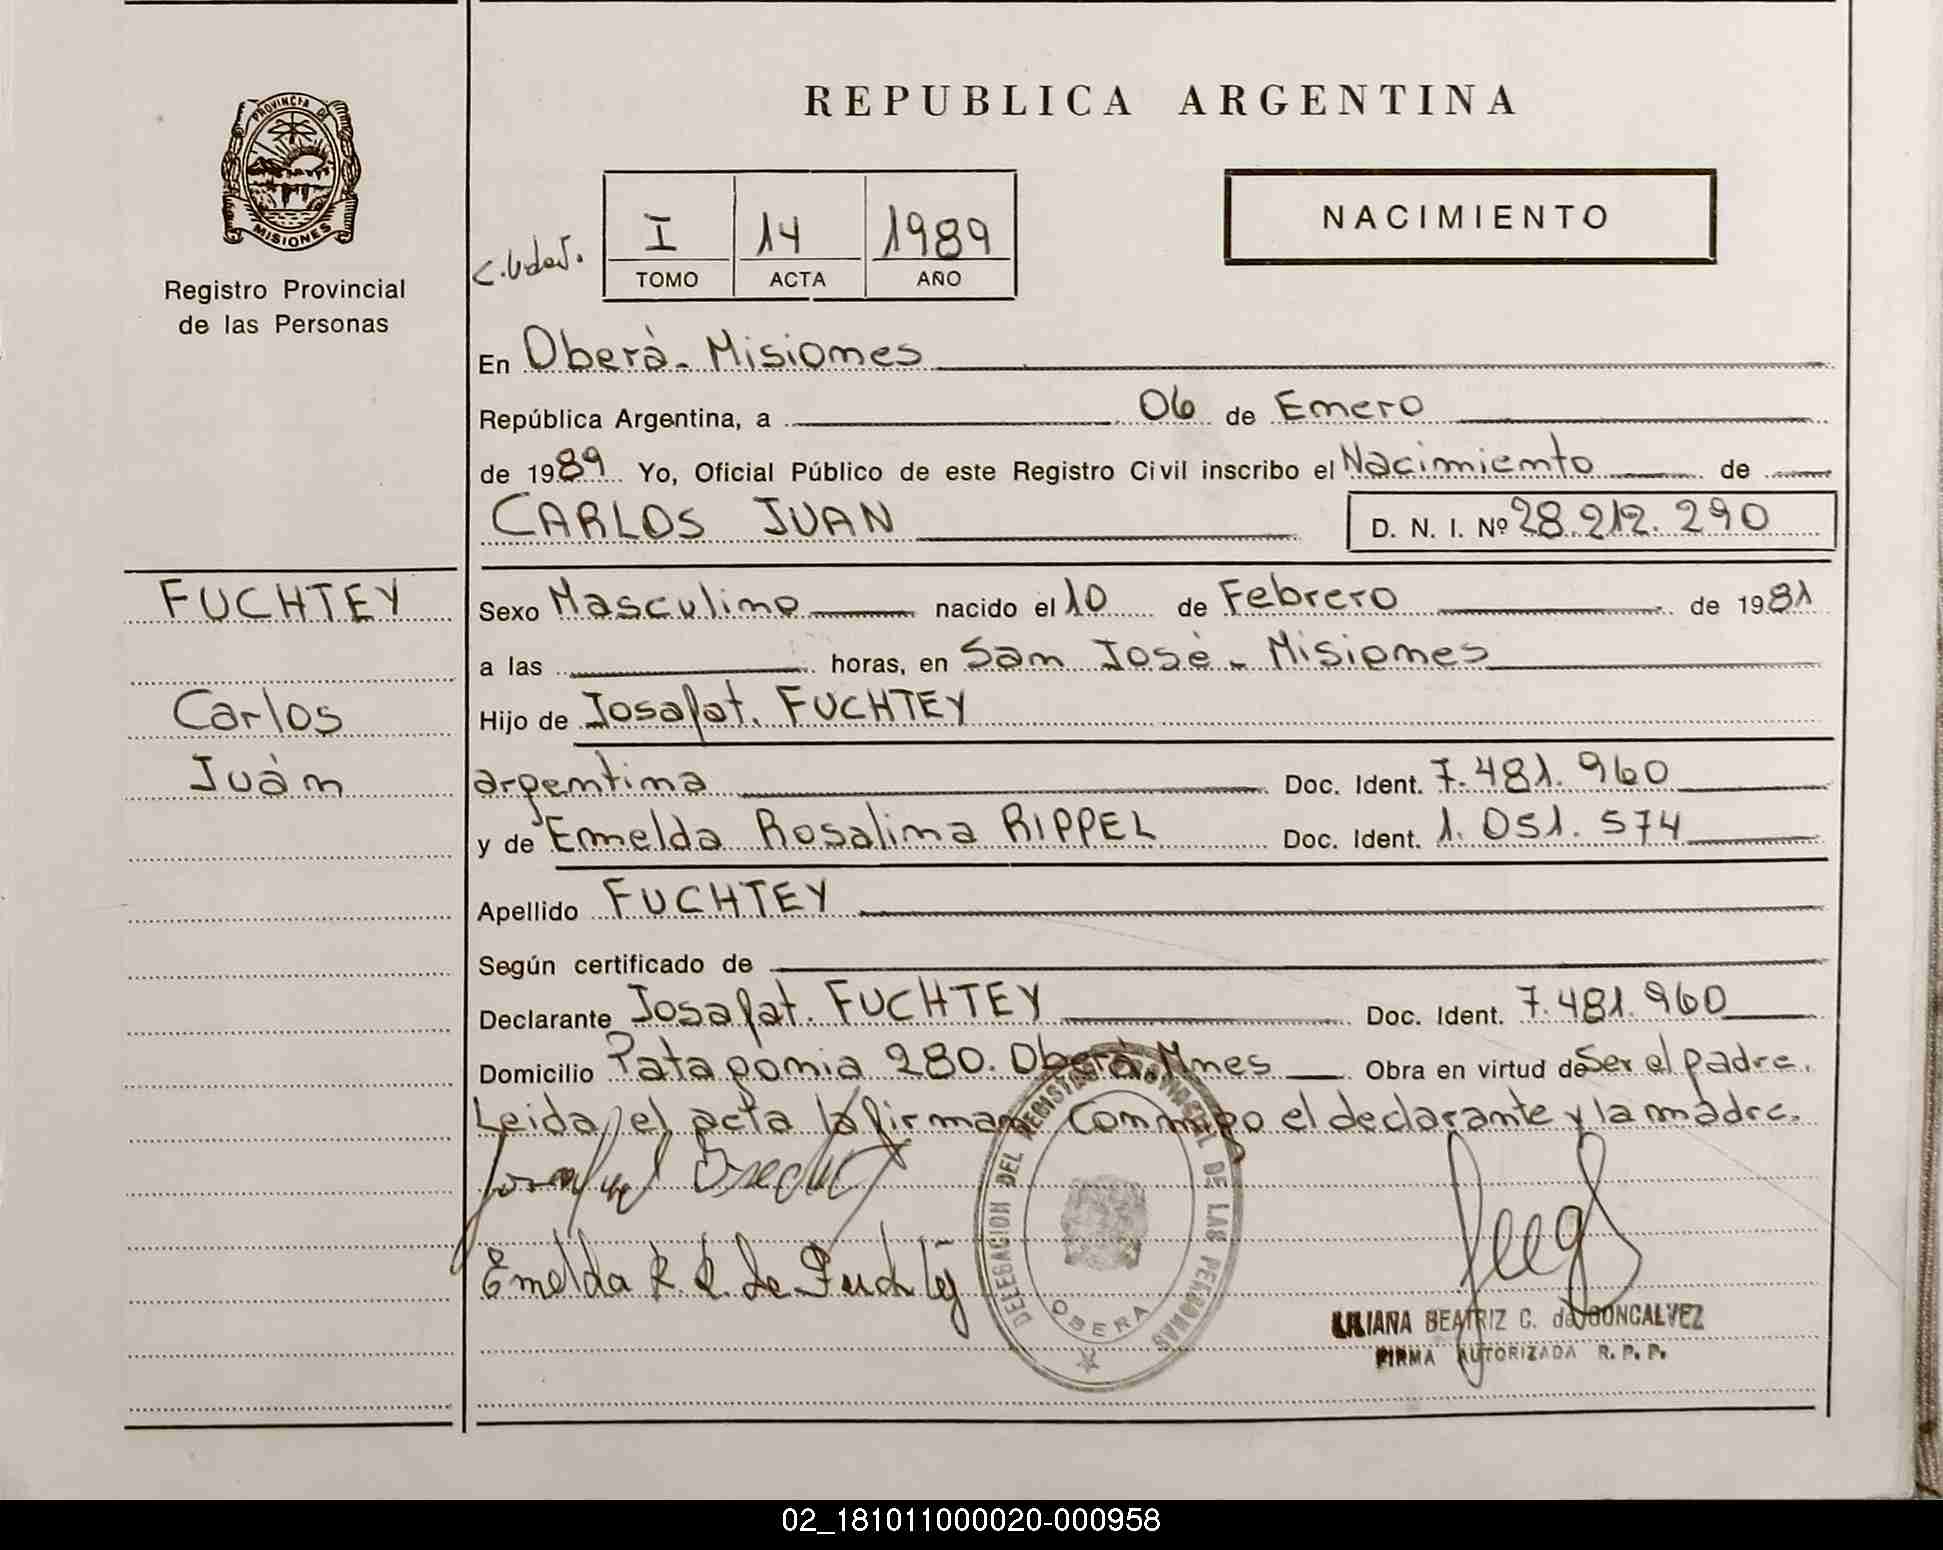 REPUBLICA ARGENTINA
PROVINCIA DE
MISIONES
Registro Provincial
de las Personas
I 14 1989
TOMO ACTA AÑO
NACIMIENTO
En Oberà - Misiones
República Argentina, a 06 de Enero
de 1989 Yo, Oficial Público de este Registro Civil inscribo el Nacimiento de
CARLOS JUAN D. N. I. Nº 28.212.290
FUCHTEY
Carlos
Juàn
Sexo Masculino nacido el 10 de Febrero de 1981
a las horas, en San Josè - Misiones
Hijo de Josafat. FUCHTEY
argentina Doc. Ident. 7.481.960
y de Emelda Rosalina RIPPEL Doc. Ident. 1.051.574
Apellido FUCHTEY
Según certificado de
Declarante Josafat. FUCHTEY Doc. Ident. 7.481.960
Domicilio Patagonia 280. Oberà Mnes Obra en virtud de Ser el padre.
Leida el acta la firman conmigo el declarante y la madre.
Emelda R. R. de Fuchtey
DELEGACION DEL REGISTRO PROVINCIAL DE LAS PERSONAS
OBERA
LILIANA BEATRIZ C. de GONCALVEZ
FIRMA AUTORIZADA R. P. P.
02_181011000020-000958